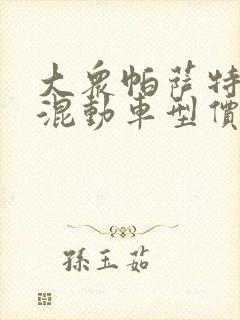 大眾帕薩特
混動車型價
孫玉茹